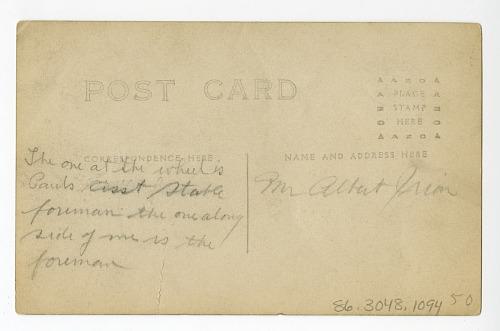 POST CARD
AAZOA
A PLACE A
N STAMP N
O HERE O
AAZOA
CORRESPONDENCE HERE
NAME AND ADDRESS HERE
The one at the wheel is
Cants asst stable
foreman the one along
side of me is the
foreman
Mr Albert
86.3048.1094 50